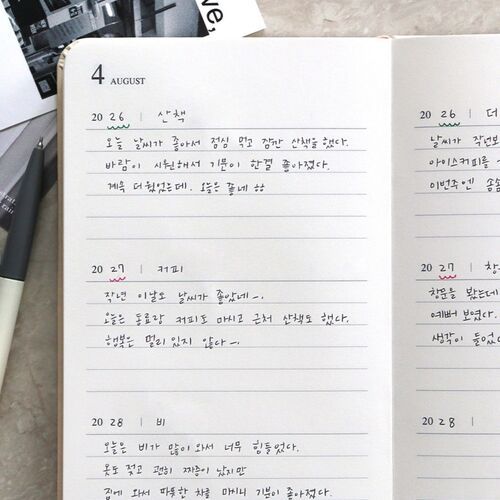 ve,
4 AUGUST
2026 | 산책
오늘 날씨가 좋아서 점심 먹고 잠깐 산책을 했다.
바람이 시원해서 기분이 한결 좋아졌다.
계속 더웠었는데. 오늘은 좋네 ㅎㅎ
2027 | 커피
작년 이날도 날씨가 좋았네~.
오늘은 동료랑 커피도 마시고 근처 산책도 했다.
행복은 멀리 있지 않다~.
2028 | 비
오늘은 비가 많이 와서 너무 힘들었다.
옷도 젖고 괜히 짜증이 났지만
집에 와서 따뜻한 차를 마시니 기분이 좋아졌다.
2026 | 더
날씨가 작년보
아이스커피를
이번주엔 솜솜
2027 | 창
창문을 봤는데
예뻐 보였다.
생각이 들었다
2028 |